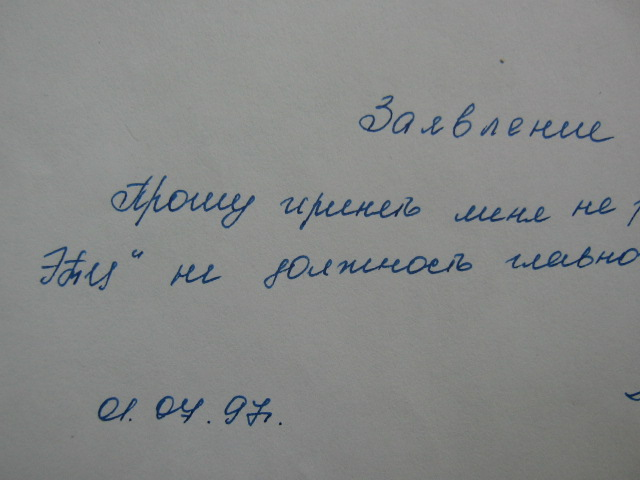 Заявление
Прошу принять меня на р
ЭТЦ" на должность главно
01.07.97г.